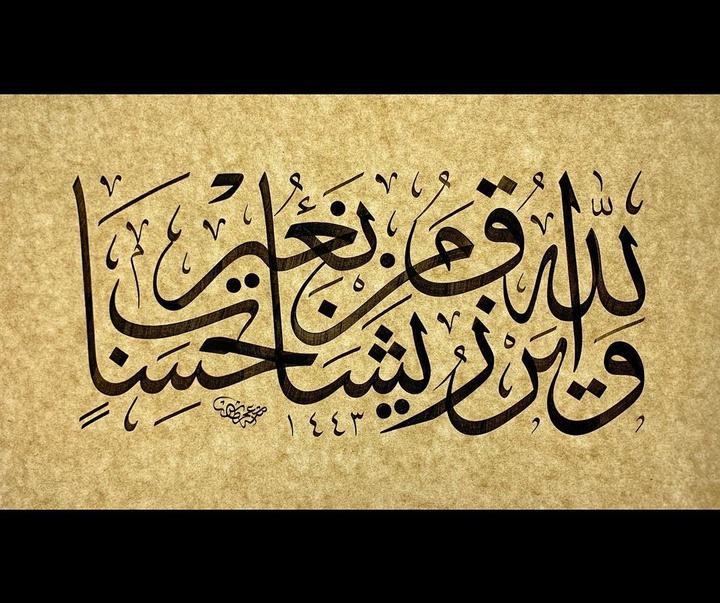 والله يرزق من يشاء بغير حساب
١٤٤٣